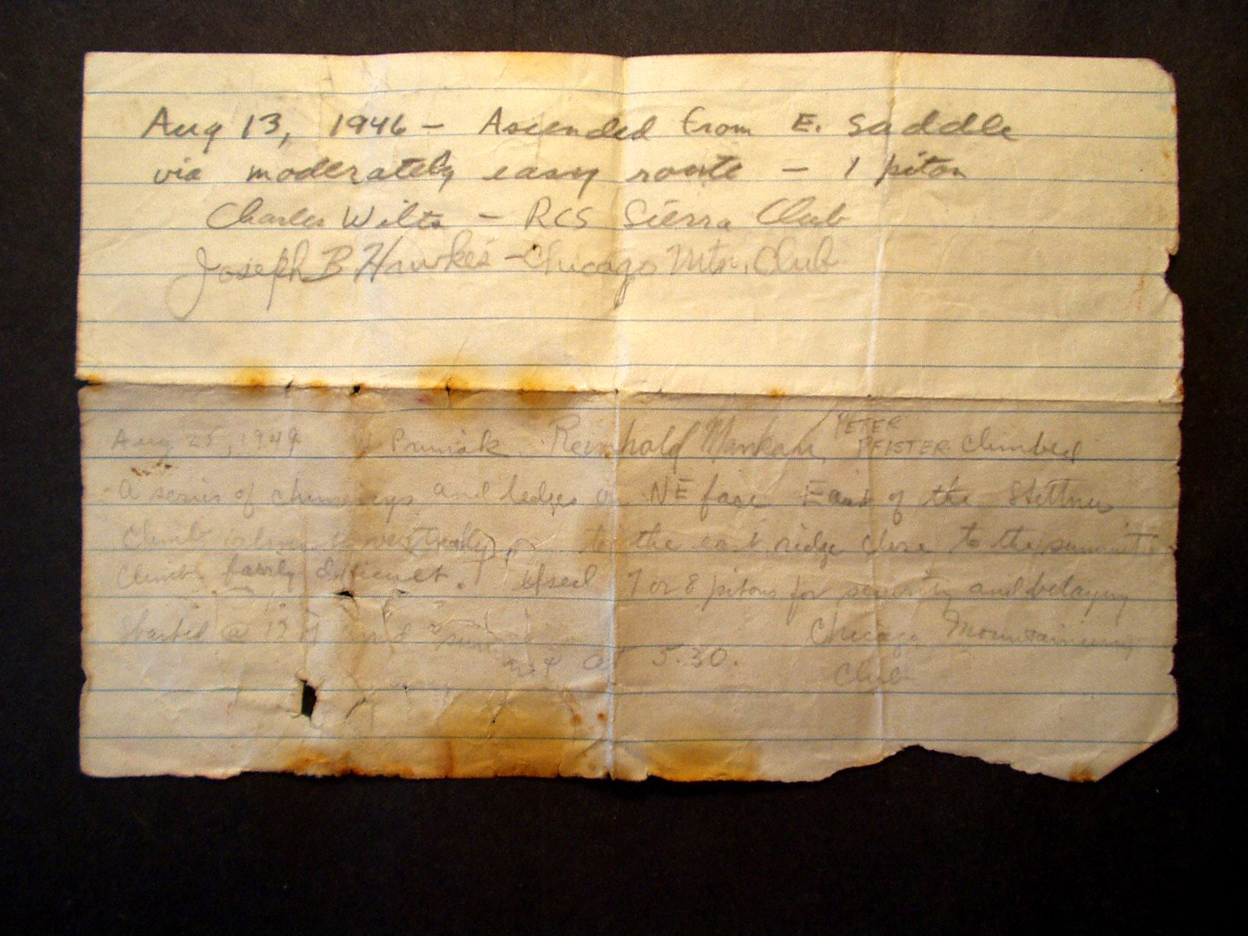 Aug 13, 1946 - Ascended from E. saddle
via moderately easy route - 1 piton
Charles Wilts - RCS Sierra Club
Joseph B Hawkes - Chicago Mtn. Club
Aug 25, 1949 Reinhold PETER
PFISTER Climbed
a series of chimneys and ledges on NE face East of the Stettner
Climb to the east ridge close to the summit.
Climb fairly difficult. Used 7 or 8 pitons for security and belaying
Started @ 12 and at 5:30. Chicago Mountaineering
Club